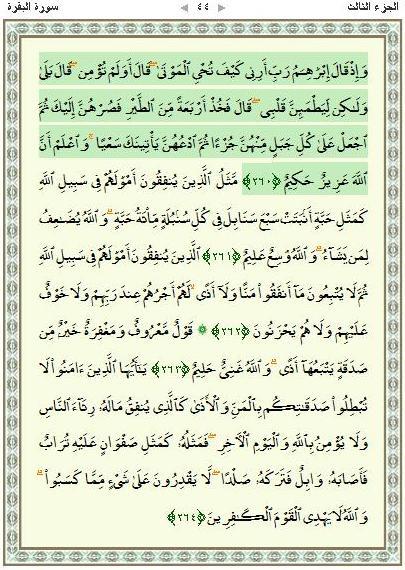 الجزء الثالث ٤٤ سورة البقرة
وَإِذْ قَالَ إِبْرَٰهِـۧمُ رَبِّ أَرِنِى كَيْفَ تُحْىِ ٱلْمَوْتَىٰ ۖ قَالَ أَوَلَمْ تُؤْمِن ۖ قَالَ بَلَىٰ
وَلَـٰكِن لِّيَطْمَئِنَّ قَلْبِى ۖ قَالَ فَخُذْ أَرْبَعَةً مِّنَ ٱلطَّيْرِ فَصُرْهُنَّ إِلَيْكَ ثُمَّ
ٱجْعَلْ عَلَىٰ كُلِّ جَبَلٍ مِّنْهُنَّ جُزْءًا ثُمَّ ٱدْعُهُنَّ يَأْتِينَكَ سَعْيًا ۚ وَٱعْلَمْ أَنَّ
ٱللَّهَ عَزِيزٌ حَكِيمٌ ﴿٢٦٠﴾ مَّثَلُ ٱلَّذِينَ يُنفِقُونَ أَمْوَٰلَهُمْ فِى سَبِيلِ ٱللَّهِ
كَمَثَلِ حَبَّةٍ أَنۢبَتَتْ سَبْعَ سَنَابِلَ فِى كُلِّ سُنۢبُلَةٍ مِّا۟ئَةُ حَبَّةٍ ۗ وَٱللَّهُ يُضَـٰعِفُ
لِمَن يَشَآءُ ۗ وَٱللَّهُ وَٰسِعٌ عَلِيمٌ ﴿٢٦١﴾ ٱلَّذِينَ يُنفِقُونَ أَمْوَٰلَهُمْ فِى سَبِيلِ ٱللَّهِ
ثُمَّ لَا يُتْبِعُونَ مَآ أَنفَقُوا۟ مَنًّا وَلَآ أَذًى ۙ لَّهُمْ أَجْرُهُمْ عِندَ رَبِّهِمْ وَلَا خَوْفٌ
عَلَيْهِمْ وَلَا هُمْ يَحْزَنُونَ ﴿٢٦٢﴾ ۞ قَوْلٌ مَّعْرُوفٌ وَمَغْفِرَةٌ خَيْرٌ مِّن
صَدَقَةٍ يَتْبَعُهَآ أَذًى ۗ وَٱللَّهُ غَنِىٌّ حَلِيمٌ ﴿٢٦٣﴾ يَـٰٓأَيُّهَا ٱلَّذِينَ ءَامَنُوا۟ لَا
تُبْطِلُوا۟ صَدَقَـٰتِكُم بِٱلْمَنِّ وَٱلْأَذَىٰ كَٱلَّذِى يُنفِقُ مَالَهُۥ رِئَآءَ ٱلنَّاسِ
وَلَا يُؤْمِنُ بِٱللَّهِ وَٱلْيَوْمِ ٱلْـَٔاخِرِ ۖ فَمَثَلُهُۥ كَمَثَلِ صَفْوَانٍ عَلَيْهِ تُرَابٌ
فَأَصَابَهُۥ وَابِلٌ فَتَرَكَهُۥ صَلْدًا ۖ لَّا يَقْدِرُونَ عَلَىٰ شَىْءٍ مِّمَّا كَسَبُوا۟ ۗ
وَٱللَّهُ لَا يَهْدِى ٱلْقَوْمَ ٱلْكَـٰفِرِينَ ﴿٢٦٤﴾